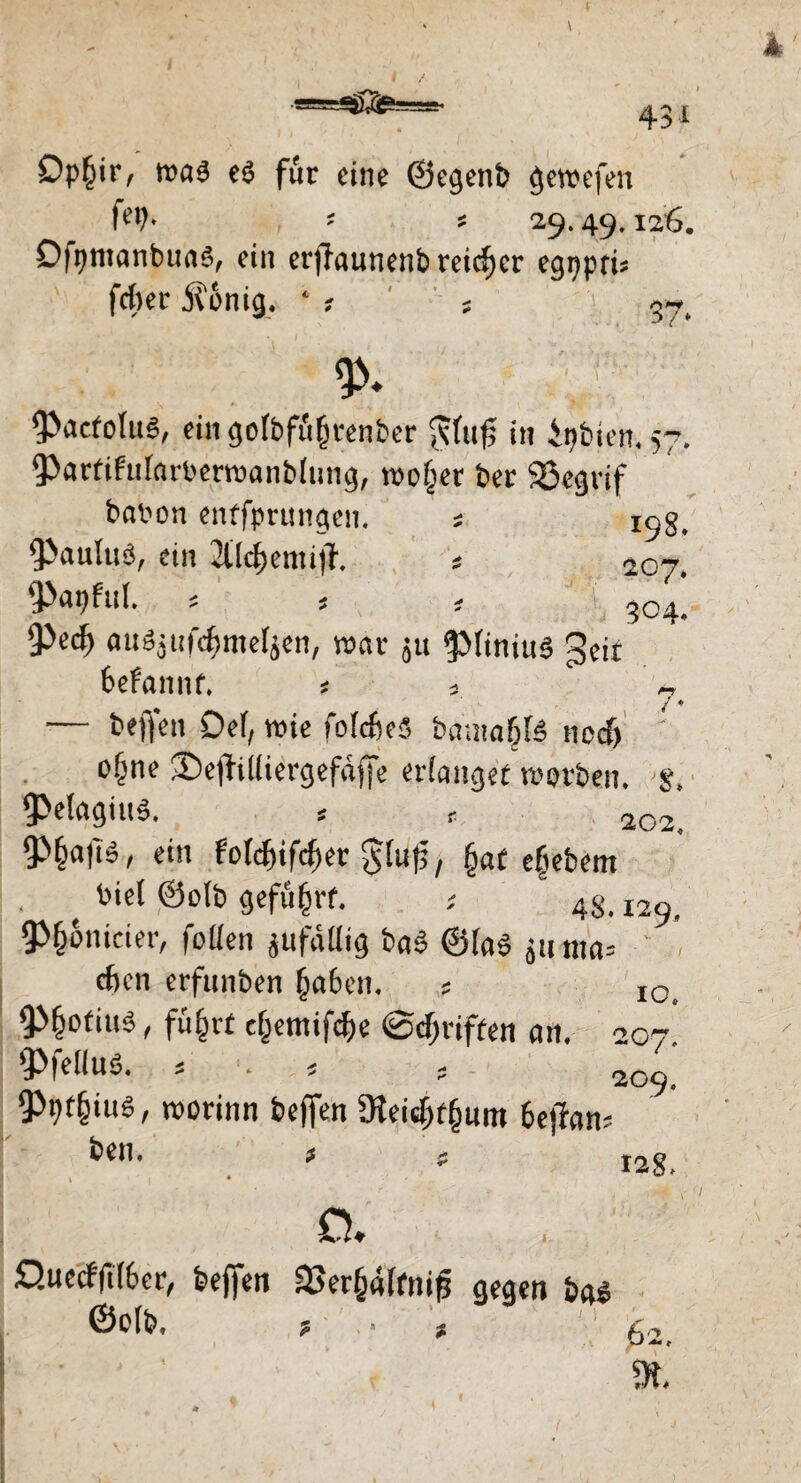 431
Ophir, was es für eine Gegend gewesen
sey. = = 29. 49. 126.
Osymanduas, ein erstaunend reicher egypti=
scher König. = = 37.
P.
Pactolus, ein goldführender Fluß in Lydien. 57.
Partikularverwandlung, woher der Begrif
davon entsprungen. = 198.
Paulus, ein Alchemist. = 207.
Papful. = = = 304.
Pech auszuschmelzen, war zu Plinius Zeit
bekannt. = = 7.
— dessen Oel, wie solches damahls noch
ohne Destilliergefässe erlanget worden. 8.
Pelagius. = = 202.
Phasis, ein kolchischer Fluß, hat ehedem
viel Gold geführt. = 48. 129.
Phönicier, sollen zufällig das Glas zu ma=
chen erfunden haben. = 10.
Photius, führt chemische Schriften an. 207.
Psellus. = = = 209.
Pythius, worinn dessen Reichthum bestan=
den. = = 128.
Q.
Quecksilber, dessen Verhältniß gegen das
Gold. = = 62.
R.